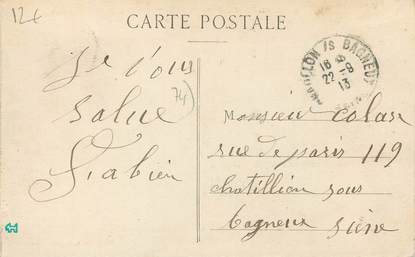 12€
CARTE POSTALE
CHATILLON /S BAGNEUX
18
22 -8
13
Je vous
salue
74
Fabien
Monsieur Colas
rue de paris 119
chatillion sous
bagneux Seine